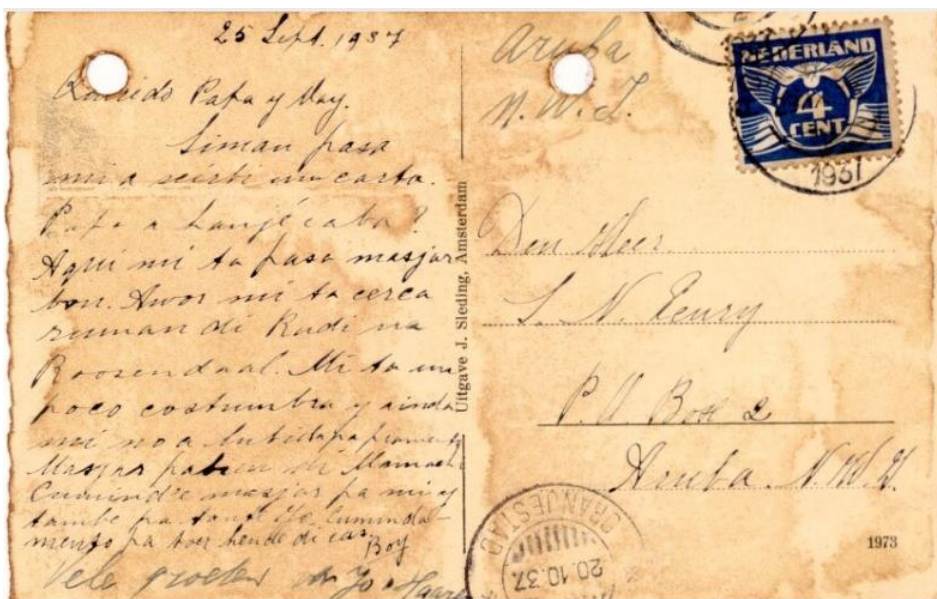 25 Sept. 1937
Querido Papa y May.
Siman pasa
mi a scirbi un carta.
Papa a haujé caba?
Aqui mi ta pasa masjar
bon. Awor mi ta cerca
ruman di Rudi na
Roosendaal. Mi ta un
poco costumbra y ainda
mi no a lubida papiamento
Masjar pabien di Mamachi
Cumindé masjar pa mi y
tambe pa tante Yo. Cuminda-
mento pa toer hende di cas
Boy
Vele groeten Jo
Uitgave J. Sleding, Amsterdam
Aruba
N. W. I.
NEDERLAND
4
CENT
1937
Den Heer
P. O. Box 2
Aruba. N. W. I.
ORANJESTAD
20.10.37
1973